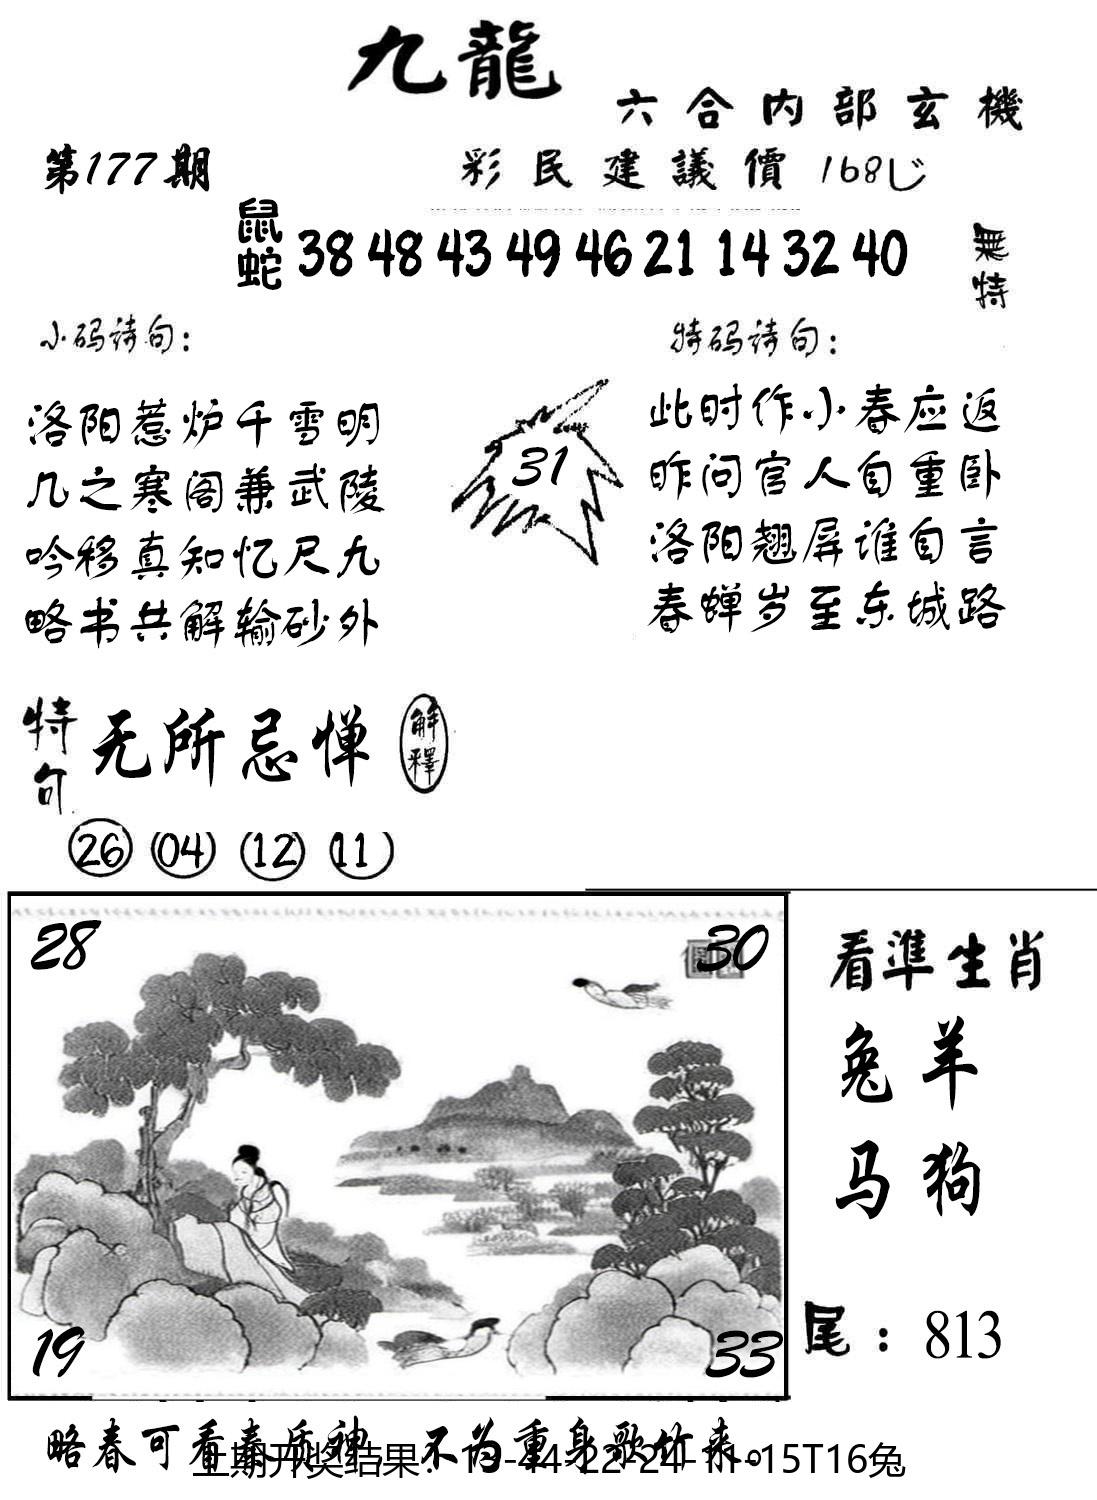 九龍
六合内部玄機
第177期
彩民建議價 168
鼠蛇 38 48 43 49 46 21 14 32 40
無特
小码诗句：
洛阳惹炉千雪明
几之寒阁兼武陵
吟移真知忆尺九
略书共解输砂外
31
特码诗句：
此时作小春应返
昨问官人自重卧
洛阳翘屏谁自言
春蝉岁至东城路
特句 无所忌惮 解釋
26 04 12 11
28
30
19
33
看準生肖
兔羊
马狗
尾：813
略春可看奉质神 不为重身歌竹来。
上期开奖结果：13-44-22-24-11-15T16兔